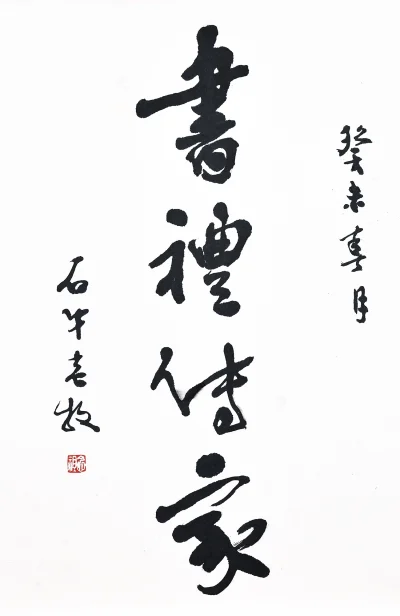 癸未春月
書禮傳家
石牛老牧